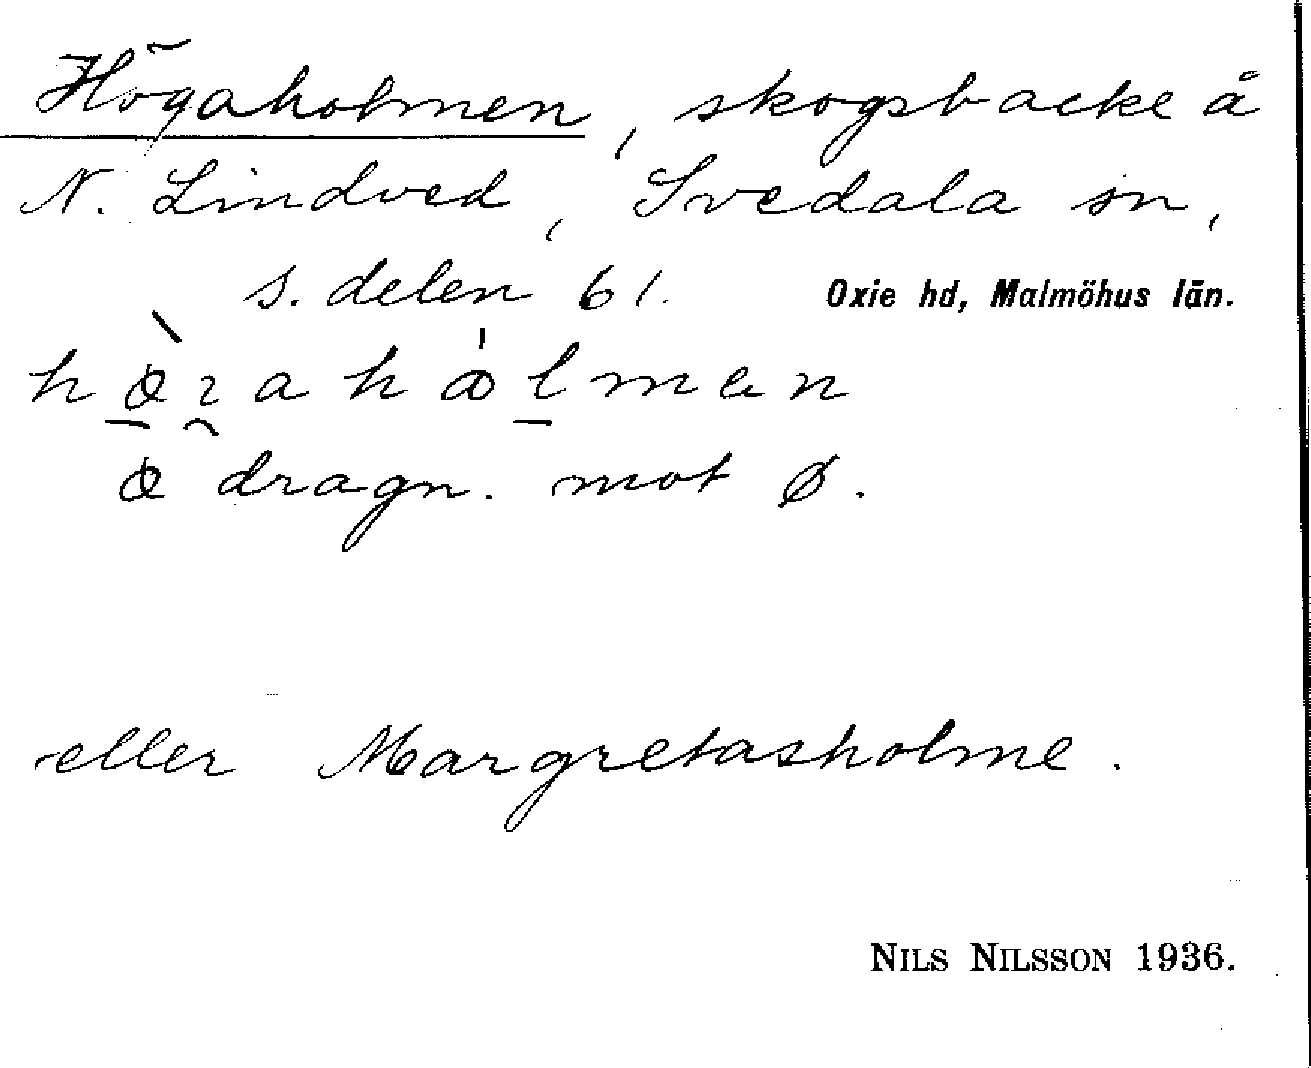 Högaholmen, skogsbacke å
N. Lindved, Svedala sn,
s. delen 61. Oxie hd, Malmöhus län.
dragn. mot ø.
eller Margretasholme.
NILS NILSSON 1936.